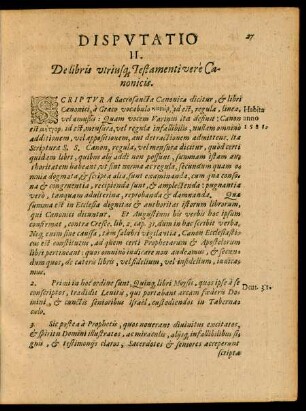 DISPVTATIO
27
II.
De libris vtriusq; Testamenti verè Ca-
nonicis.
SCRIPTVRA Sacrosancta Canonica dicitur, & libri
Canonici, à Græco vocabulo κανὼν, id est, regula, linea,
vel amussis: Quam vocem Varinus ita definit: Canon
Habita
anno
1581.
est id est mensura, vel regula infallibilis, nullam omnino
additionem, vel appositionem, aut detractionem admittens, ita
Scriptura S. S. Canon, regula, vel mensura dicitur, quod certi
quidam libri, quibus alij addi non possunt, summam istam au-
thoritatem habeant vt sint norma ac regula, secundum quam o-
mnia dogmata, ac scripta alia sunt examinanda, cum qua consu-
sa & congruentia, recipienda sunt & amplectenda: pugnantia
verò, tanquam adulterina, reprobanda & damnanda. Qua
summa est in Ecclesia dignitas & authoritas istorum librorum,
qui Canonici dicuntur. Et Augustinus bis verbis hoc ipsum
confirmat, contra Cresco. lib. 2. cap. 31. dum in hæc scribit verba.
Neq; enim sine causa, tam salubri vigilantia, Canon Ecclesiasti-
cus est constitutus, ad quem certi Prophetarum & Apostolorum
libri pertineant: quos omnino iudicare non audeamus, & secun-
dum quos, de cæteris libris, vel fidelium, vel infidelium, iudica-
mus.
2. Primi in hoc ordine sunt, Quinq; libri Mosis, quos ipse à se
conscriptos, tradidit Leuitis, qui portabant arcam fœderis Do-
mini, & cunctis senioribus Israël, custodiendos in Taberna-
culo.
Deut. 31.
3. Sic postea à Prophetis, quos nouerant diuinitus excitatos,
& spiritu Domini illustratos, ac miraculis, alijsq; infallibilibus si-
gnis, & testimonijs claros, Sacerdotes & seniores acceperunt
scripta